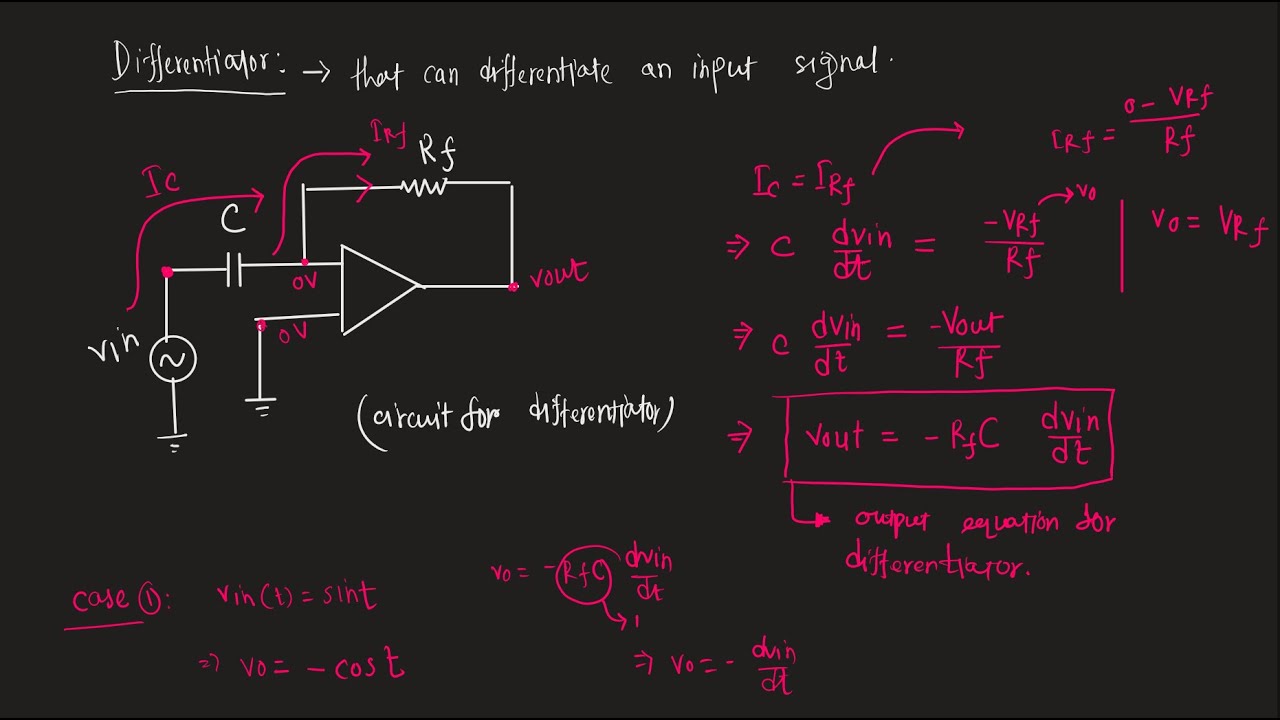 Differentiator: → that can differentiate an input signal.
Ic
IRf
Rf
C
0V
0V
vin
vout
(circuit for differentiator)
Ic = IRf
IRf = 0 - VRf / Rf
⇒ C dvin/dt = -VRf/Rf → vo | vo = VRf
⇒ C dvin/dt = -Vout/Rf
⇒ vout = - RfC dvin/dt
output equation for
differentiator.
case ①: vin(t) = sint
⇒ vo = - cost
vo = - RfC dvin/dt
→ 1
⇒ vo = - dvin/dt